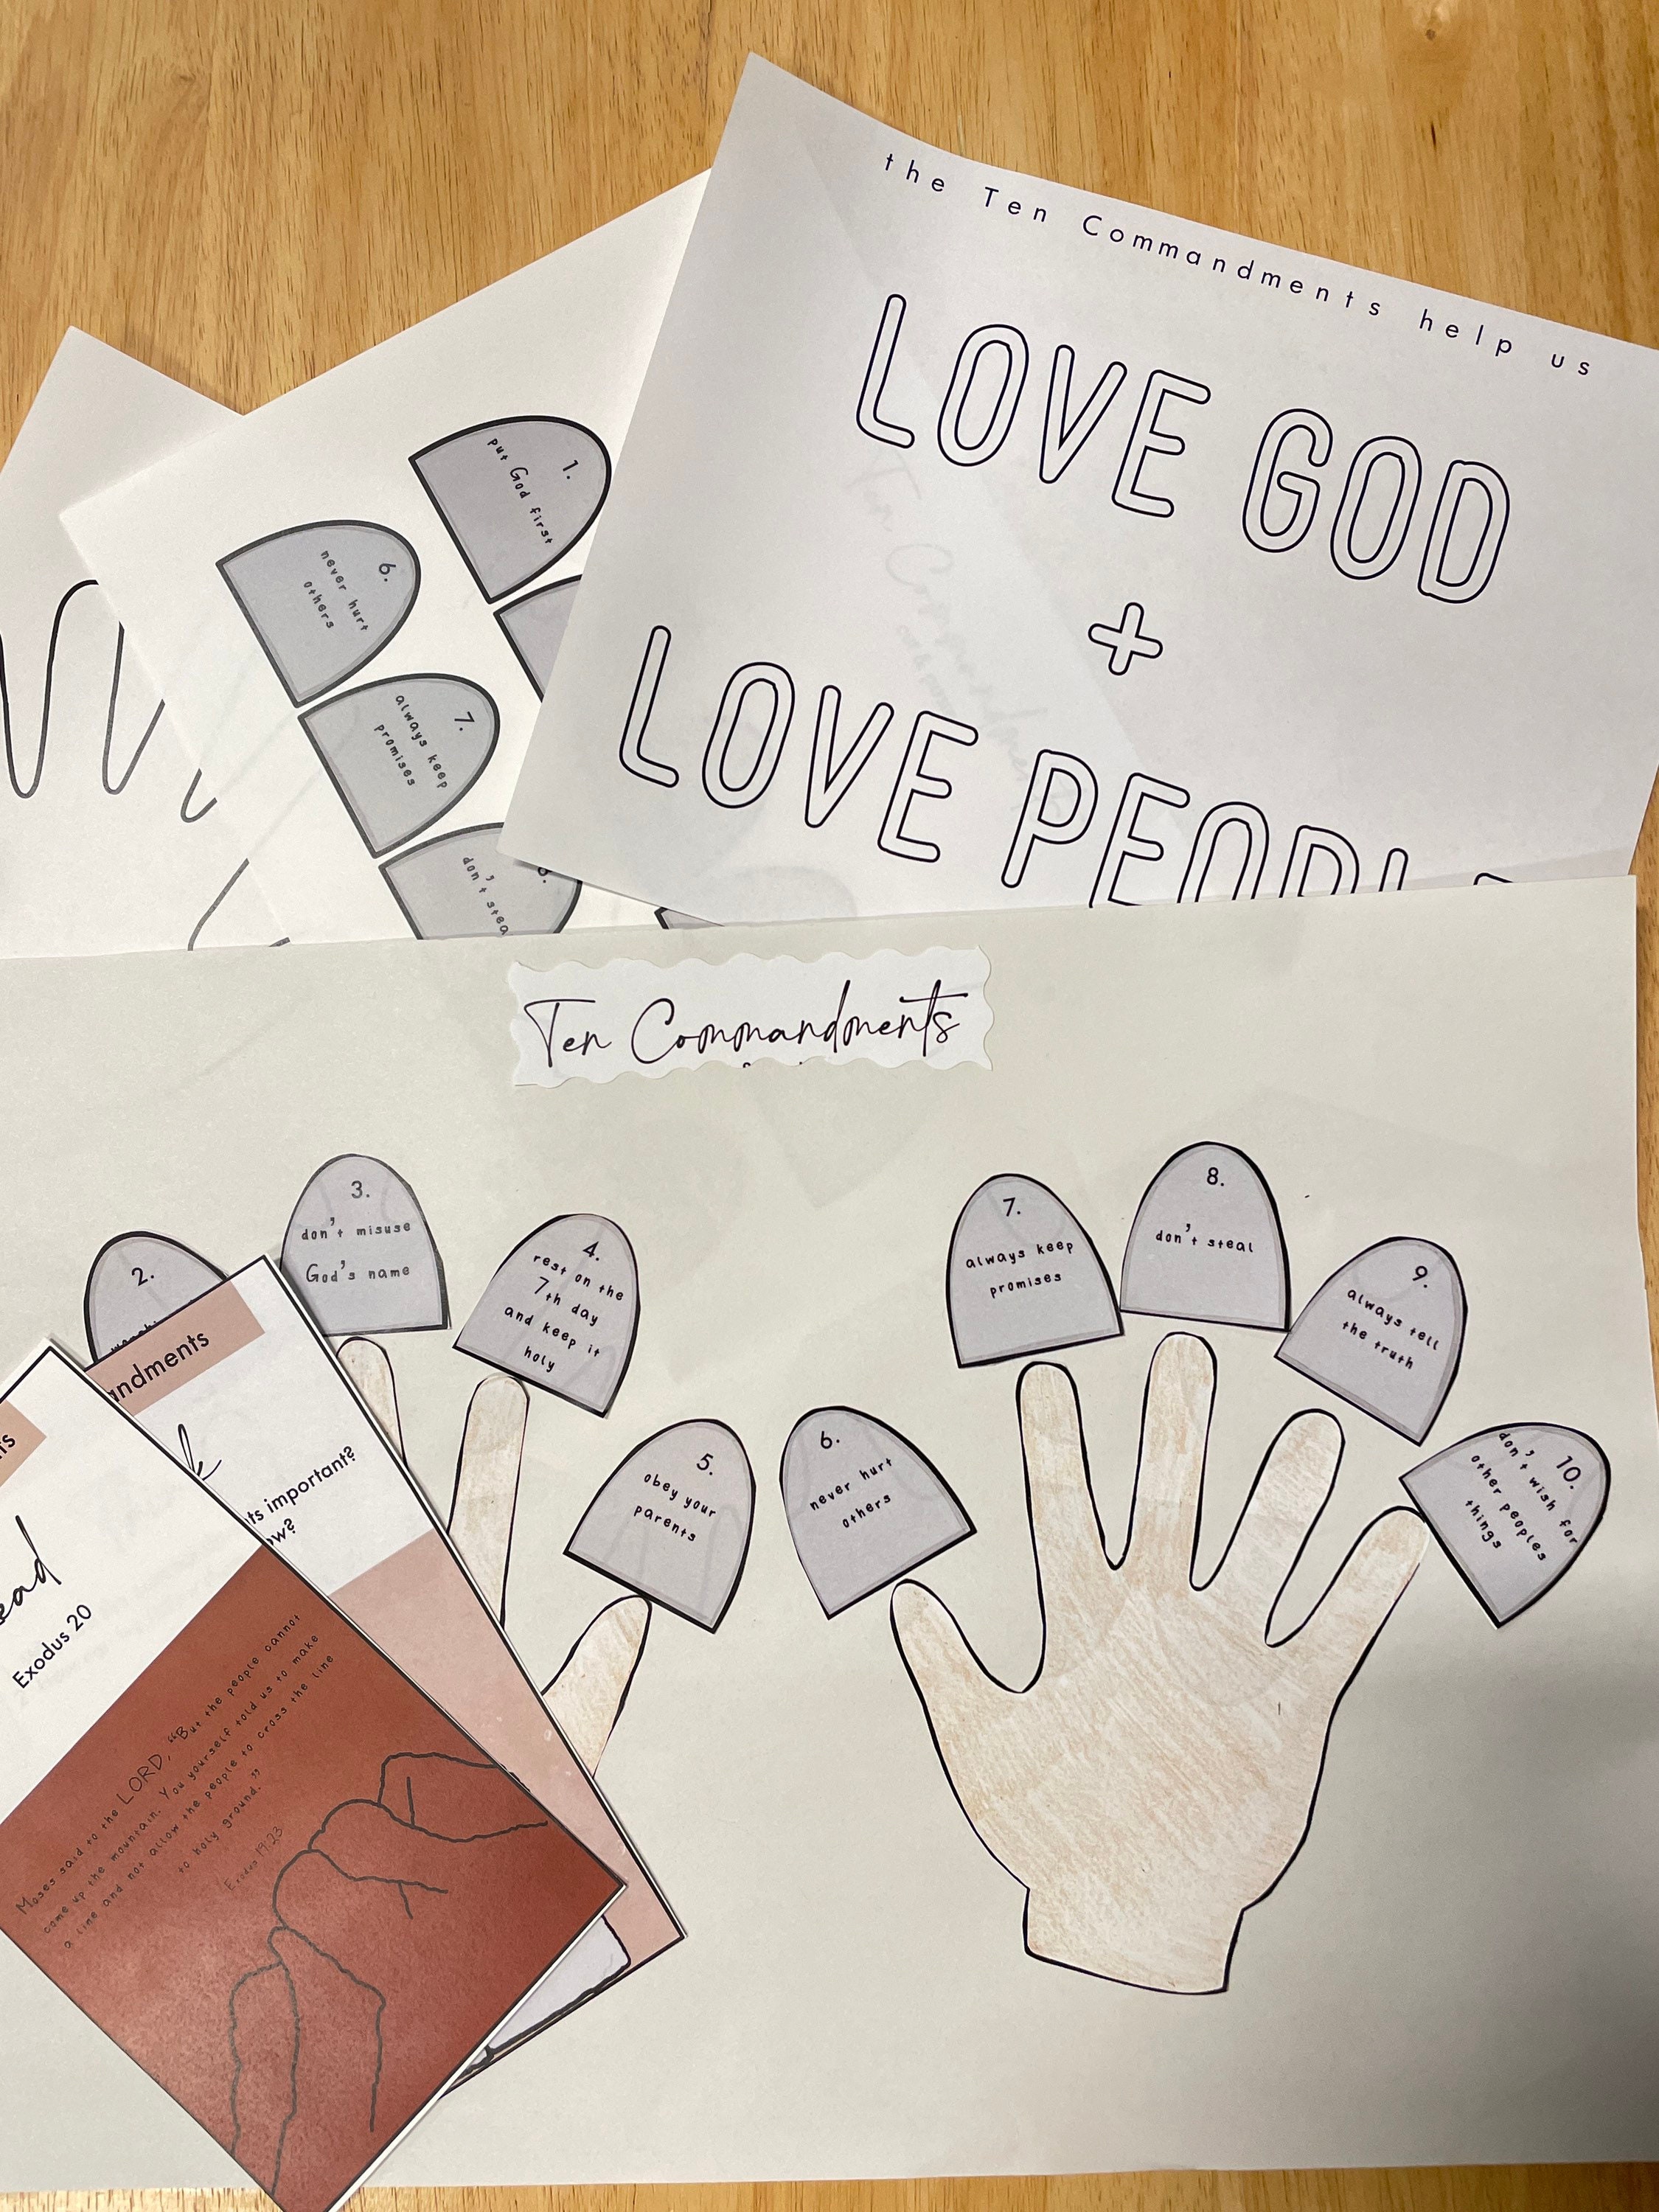 the Ten Commandments help us
LOVE GOD
+
LOVE
1.
put God first
6.
never hurt
others
7.
always keep
promises
don't
Ten Commandments
2.
3.
don't misuse
God's name
4.
rest on the
7th day
and keep it
holy
5.
obey your
parents
6.
never hurt
others
7.
always keep
promises
8.
don't steal
9.
always tell
the truth
10.
don't wish for
other peoples
things
important?
Exodus 20
Moses said to the LORD, "But the people cannot
come up the mountain. You yourself told us to make
a line and not allow the people to cross the line
to holy ground."
Exodus 19:23